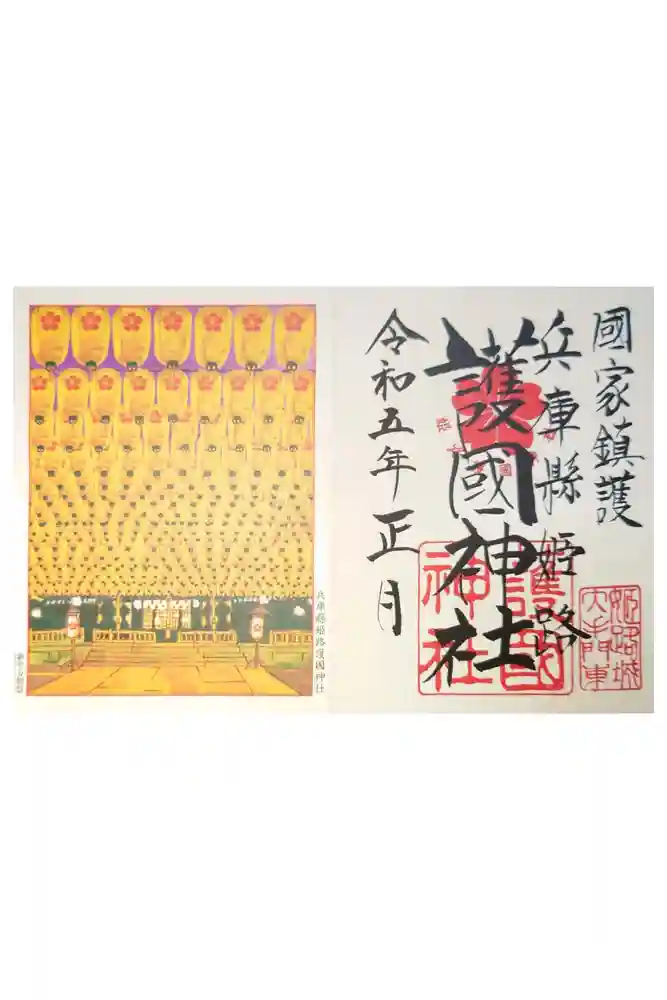 國家鎮護
兵庫縣姫路
護國神社
令和五年正月
護國
神社
姫路城
大手門東
兵庫縣姫路護國神社